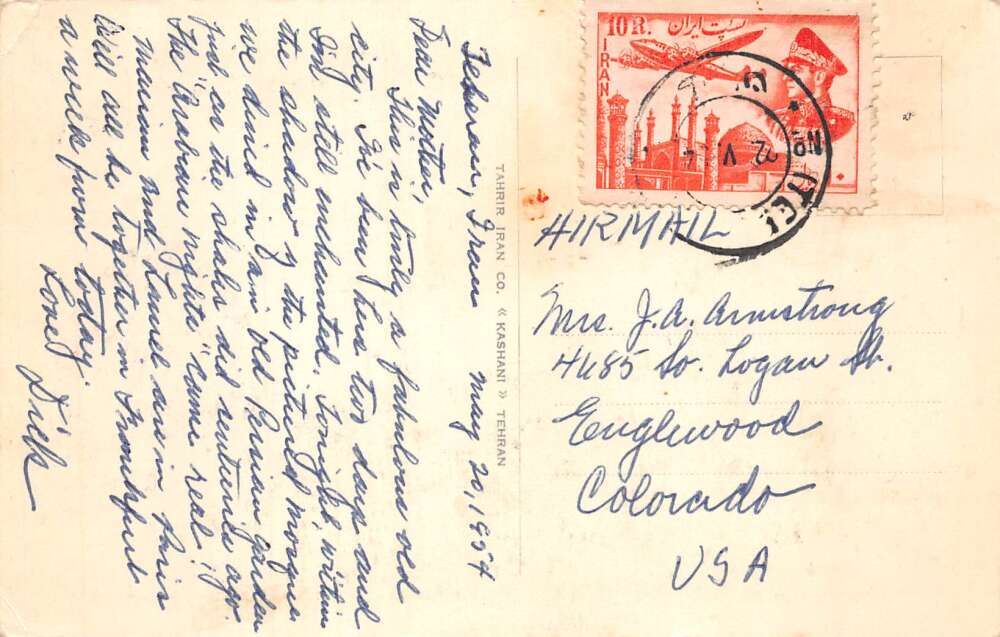 Teheran, Iran May 20, 1954
Dear Mother,
This is truly a fabulous old
city. I've been here two days and
I'm still enchanted. Tonight, within
the shadow of the pictured mosque
we dined in an old Persian garden
just as the shahs did centuries ago.
The "Arabian nights" come real!
Maxim and are in Paris
Will all be together in Frankfurt
a week from today.
Love,
TAHRIR IRAN CO. « KASHANI » TEHRAN
10 R.
پست ایران
IRAN
AIRMAIL
Mrs. J.A. Armstrong
4685 So. Logan St.
Englewood
Colorado
USA